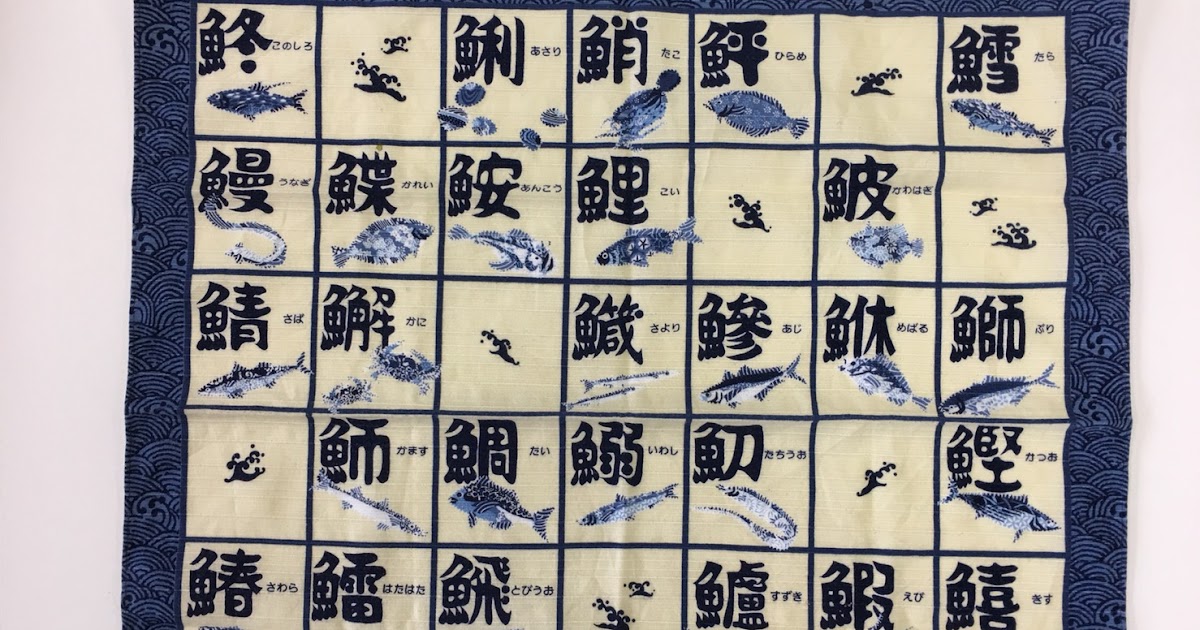 鮗 このしろ
鯏 あさり
鮹 たこ
鮃 ひらめ
鱈 たら
鰻 うなぎ
鰈 かれい
鮟 あんこう
鯉 こい
鮍 かわはぎ
鯖 さば
かに
さより
鰺 あじ
鮴 めばる
鰤 ぶり
魳 かます
鯛 たい
鰯 いわし
魛 たちうお
鰹 かつお
鰆 さわら
鱩 はたはた
とびうお
鱸 すずき
鰕 えび
鱚 きす